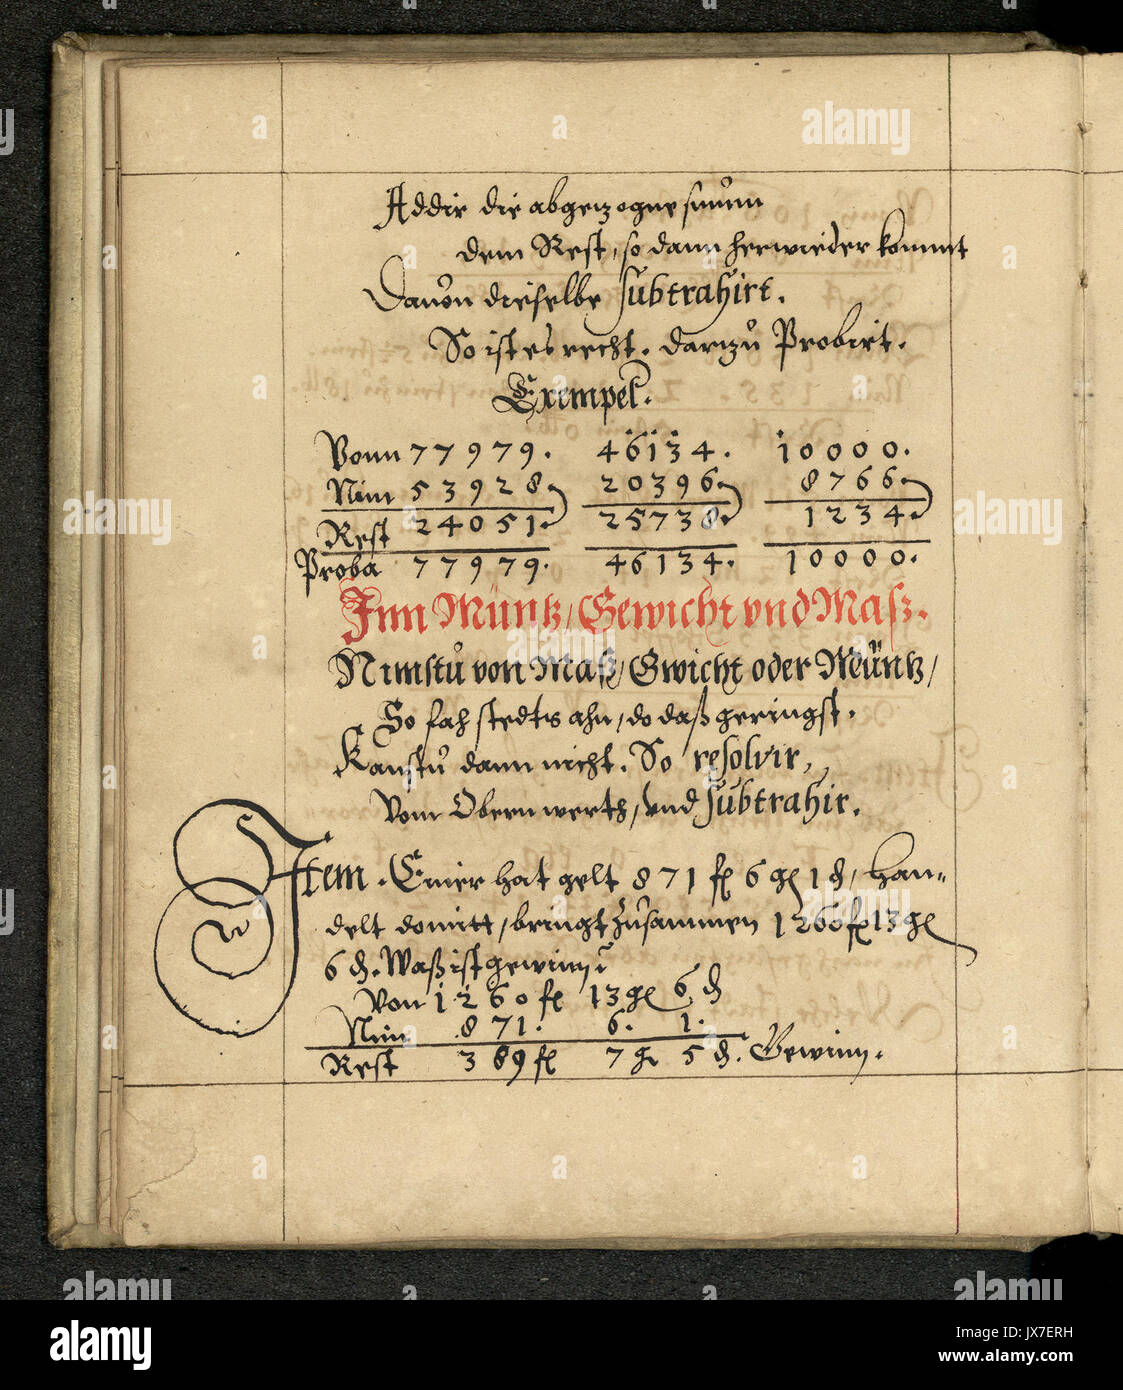 Addir die abgezogne sum̃
dem Rest, so dann herwieder kommt
Dauon dieselbe subtrahirt.
So ist es recht. darzu Probirt.
Exempel.
Vonn 77979. 46134. 10000.
Nim 53928 20396. 8766.
Rest 24051. 25738 1234.
Proba 77979. 46134. 10000.
Inn Müntz/ Gewicht vnd Masz.
Nimstu von Masz/ Gwicht oder Müntz/
So fah stedts ahn/ do daß geringst.
Kanstu dann nicht. So resolvir,
Vom Obern werth/ vnd subtrahir.
Item. Einer hat gelt 871 fl 6 gl 1 d/ han=
delt domitt/ bringt zusammen 1260 fl 13 gl
6 d. Waß ist gewinn?
Von 1260 fl 13 gl 6 d
Nim 871. 6. 1.
Rest 389 fl 7 gl 5 d. Gewinn.
alamy stock photo
JX7ERH
www.alamy.com